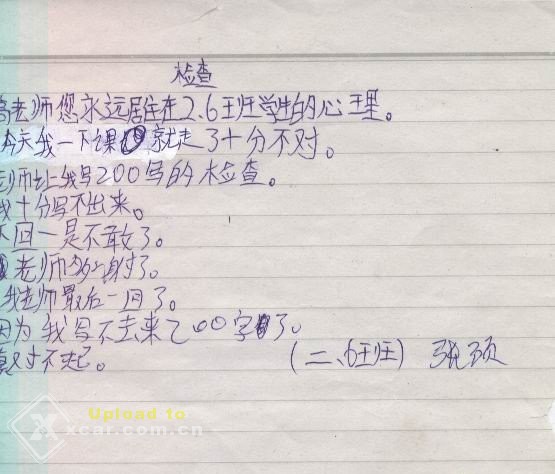 检查
老师您永远居住在2.6班学生的心里。
今天我一下课就走了十分不对。
老师让我写200写的检查。
我十分写不出来。
一是不敢了。
老师多谢了。
我老师最后一回了。
因为我写不去来200字了。
真对不起。
(二、6班)
Upload to
xcar.com.cn